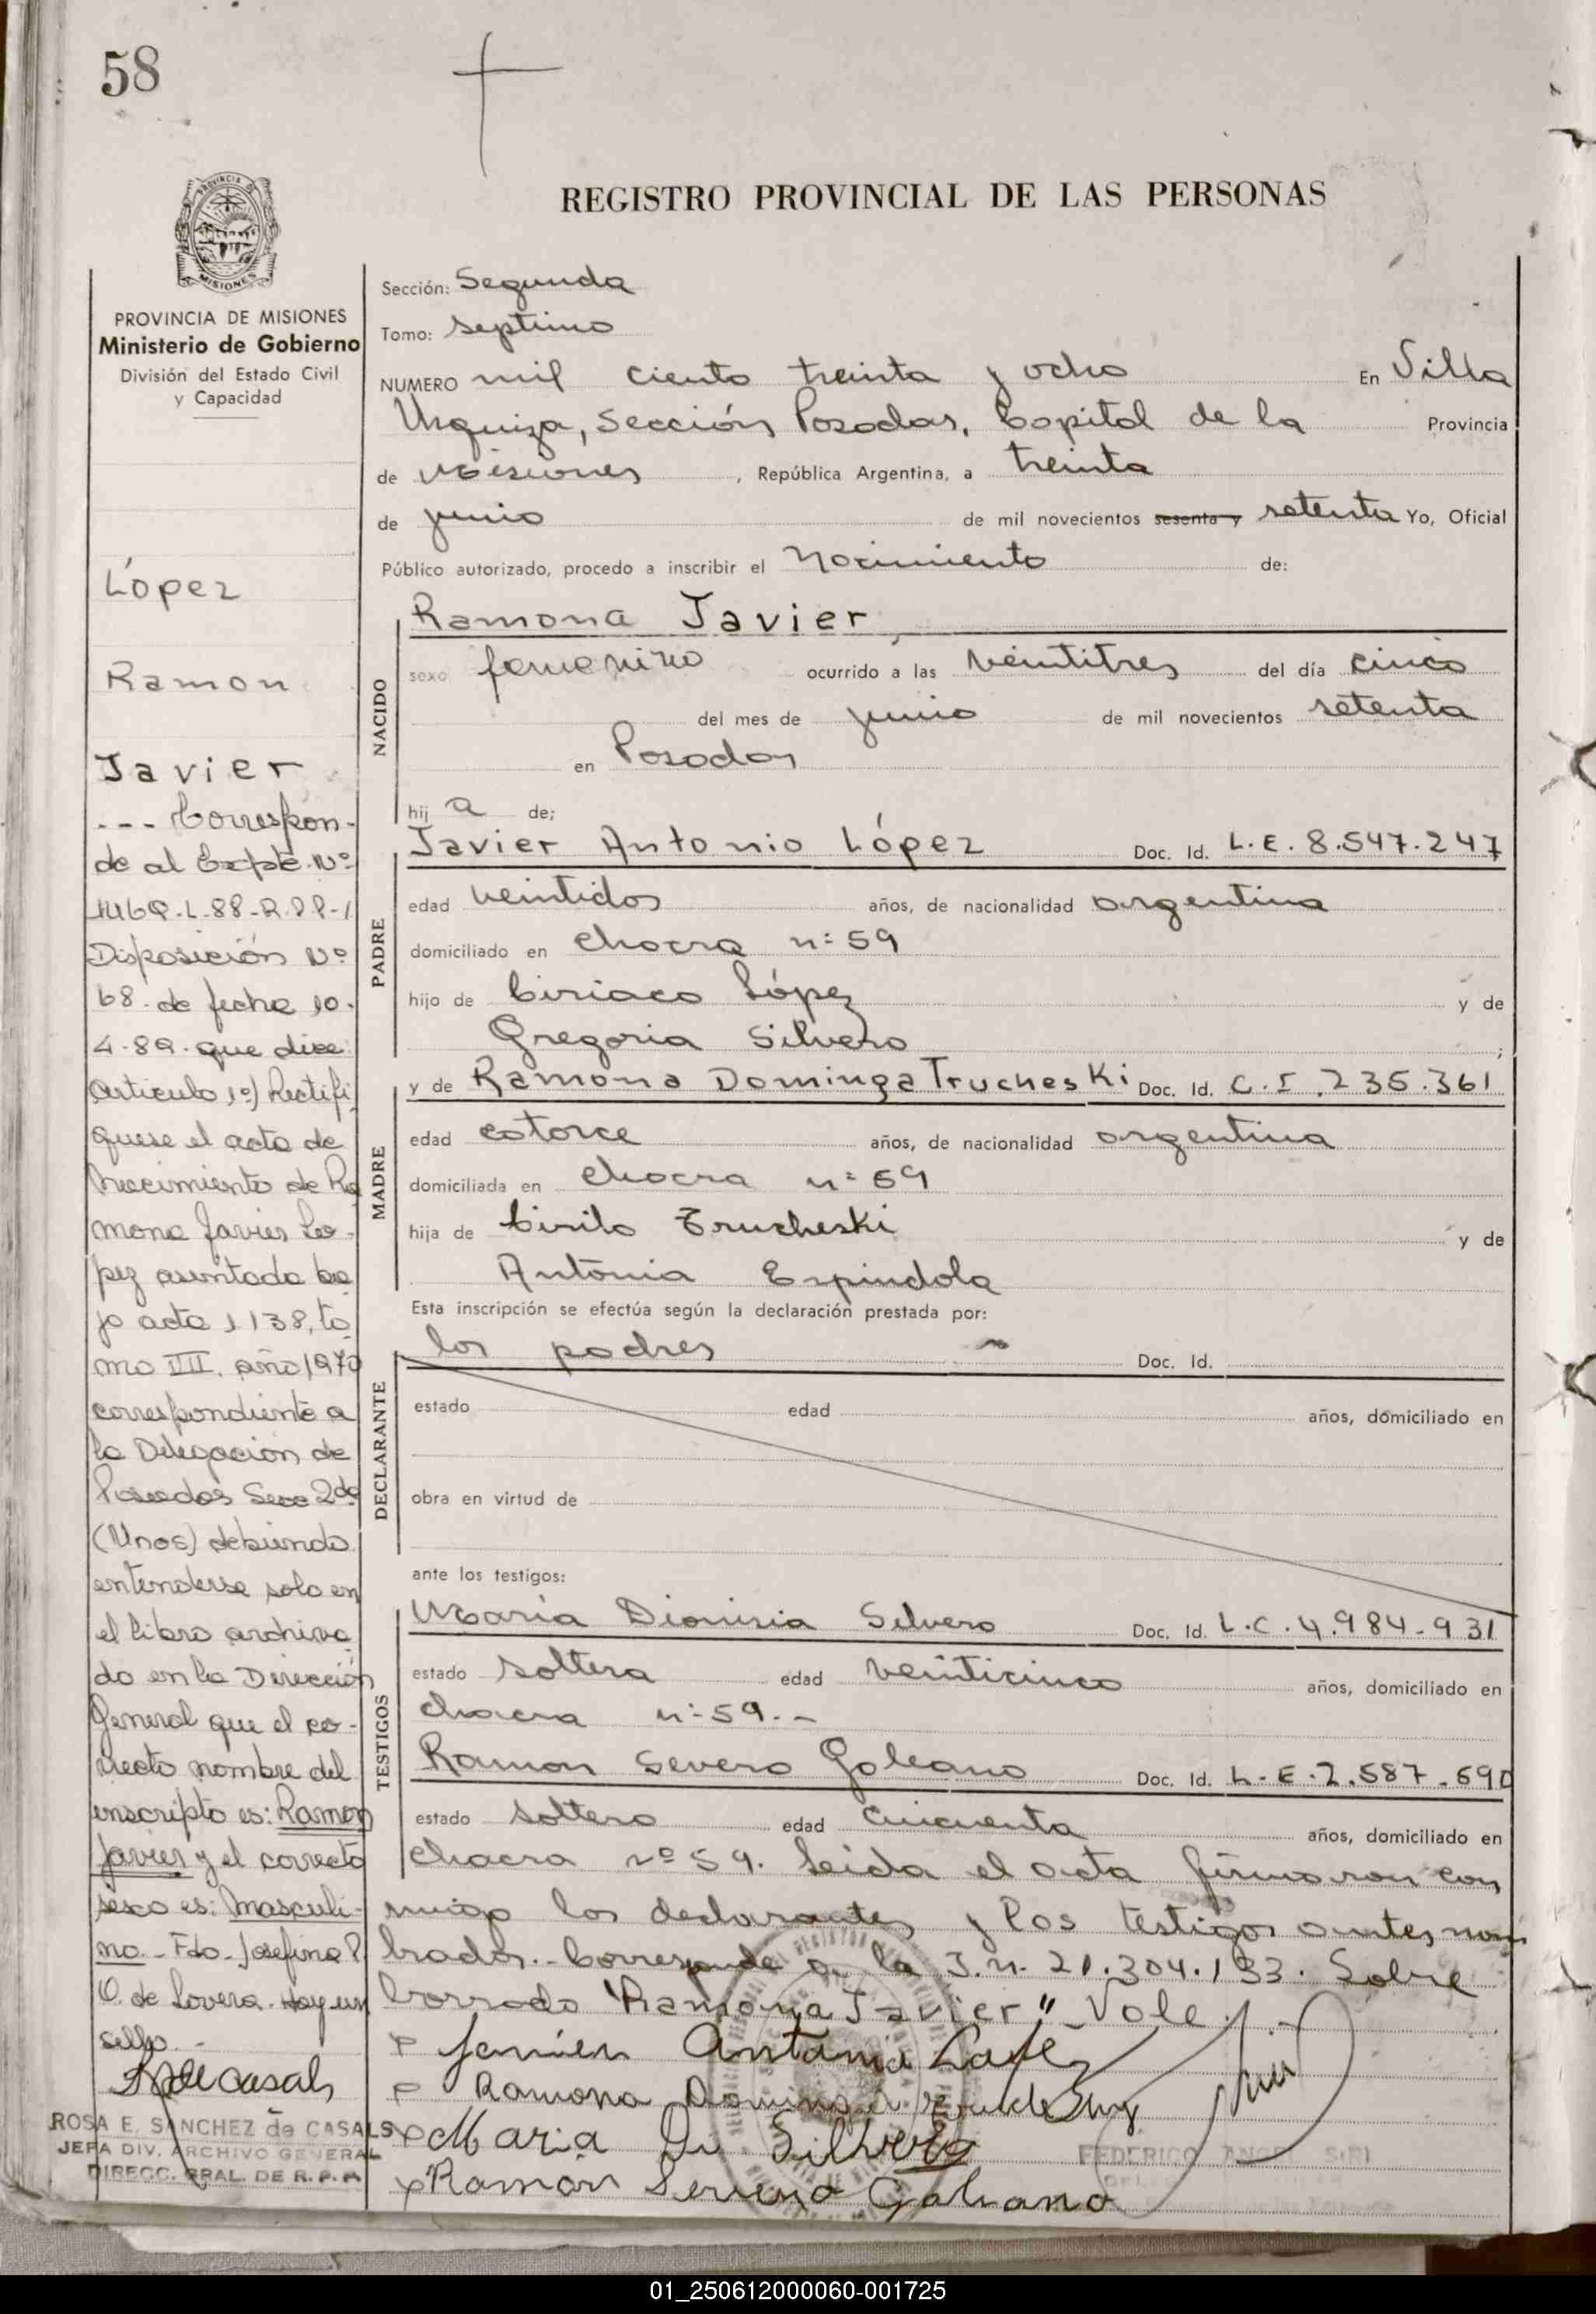 58
REGISTRO PROVINCIAL DE LAS PERSONAS
PROVINCIA DE MISIONES
Ministerio de Gobierno
División del Estado Civil
y Capacidad
López
Ramon
Javier
--- Correspon-
de al Expte. Nº
Disposición Nº
68. de fecha 10.
4-89. que dice:
Articulo 1º) Rectifi
quese el acta de
nacimiento de Ra
mona Javier Lo-
pez asentada ba
jo acta 1138, to
mo VII. año 1970
correspondiente a
la Delegación de
Posadas Secc 2da
(Unos) debiendo
entenderse solo en
el libro archiva
do en la Dirección
General que el co-
rrecto nombre del
inscripto es: Ramon
Javier y el correcto
sexo es: Masculi-
no - Fdo - Josefina P.
O. de Lovera. Hay un
sello. -
ROSA E. SANCHEZ de CASALS
JEFA DIV. ARCHIVO GENERAL
DIRECC. GRAL. DE R. P. P.
Sección: Segunda
Tomo: Septimo
NUMERO mil ciento treinta y ocho En Villa
Urquiza, Sección Posadas, Capital de la Provincia
de Misiones, República Argentina, a treinta
de junio de mil novecientos sesenta y setenta Yo, Oficial
Público autorizado, procedo a inscribir el Nacimiento de:
NACIDO
Ramona Javier
sexo femenino ocurrido a las veintitres del día cinco
del mes de junio de mil novecientos setenta
en Posadas
hij a de;
PADRE
Javier Antonio López Doc. Id. L.E. 8.547.247
edad veintidos años, de nacionalidad argentina
domiciliado en chacra nº 59
hijo de Ciriaco López y de
Gregoria Silvero ;
MADRE
y de Ramona Dominga Trucheski Doc. Id. C.I. 235.361
edad catorce años, de nacionalidad argentina
domiciliada en chacra nº 59
hija de Cirilo Trucheski y de
Antonia Espindola
Esta inscripción se efectúa según la declaración prestada por:
DECLARANTE
los padres Doc. Id.
estado edad años, domiciliado en
obra en virtud de
ante los testigos:
TESTIGOS
María Dionisia Silvero Doc. Id. L.C. 4.984.931
estado soltera edad veinticinco años, domiciliado en
chacra nº 59. -
Ramon Severo Galeano Doc. Id. L.E. 2.587.690
estado soltero edad cincuenta años, domiciliado en
chacra nº 59. Leida el acta firmaron con
migo los declarantes y los testigos antes nom
brados.- Corresponde a la I.n. 21.304.133. Sobre
borrado "Ramona Javier" Vale. -
Javier Antonio López
Ramona Dominga
Maria Di Silvero
Ramón Severo Galeano
FEDERICO ANGEL SIRI
01_250612000060-001725